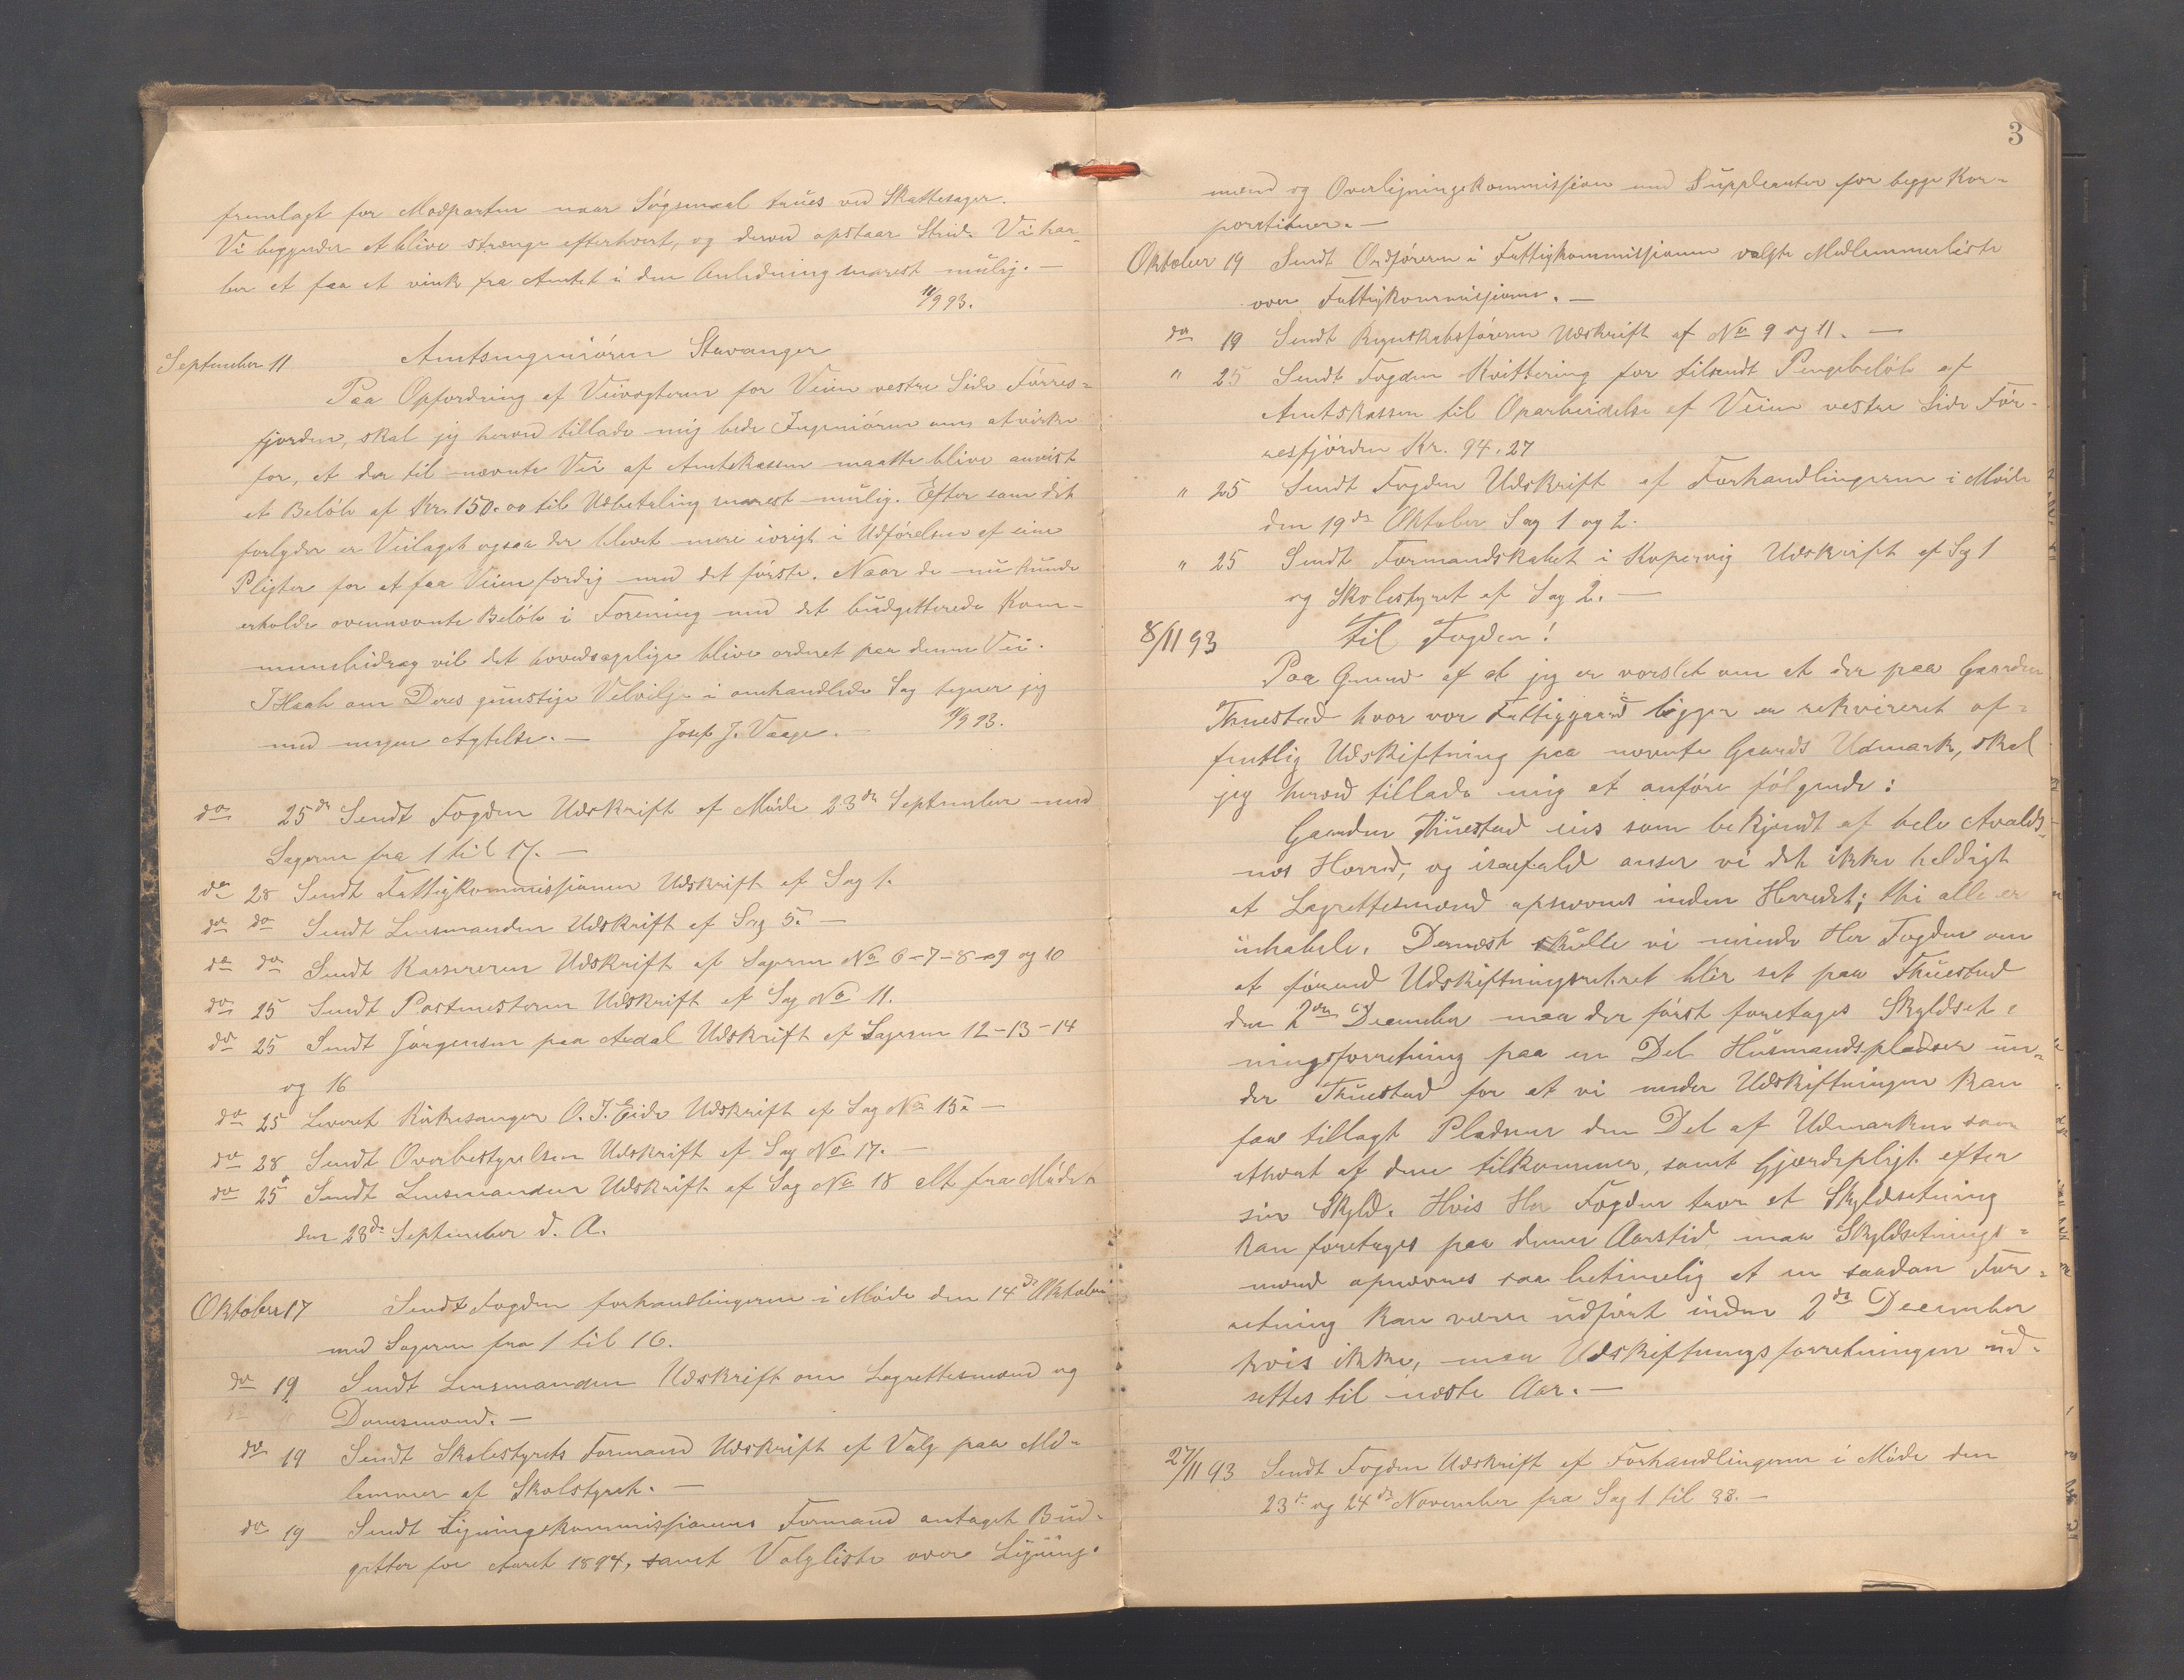 fremlagt for Modparten naar Søgsmaal trues ved Skattesager.
Vi begynder at blive strænge efterhvert, og derved opstaar Strid. Vi har
ber at faa et vink fra Amtet i den Anledning snarest mulig. —
11/9 93.
September 11 Amtsingeniøren Stavanger
Paa Opfordring af Veivogteren for Veien vestre Side Førres-
fjorden, skal jeg herved tillade mig bede Ingeniøren om at virke
for, at der til nævnte Vei af Amtskassen maatte blive anvist
et Beløb af Kr. 150.00 til Udbetaling snarest mulig. Efter som dit
forlyder er Veilaget ogsaa der blevet mere ivrigt i Udførelsen af sine
Pligter for at faa Veien færdig med det første. Naar de nu kunde
erholde ovennævnte Beløb i Forening med det budgetterede Kom-
munebidrag vil det hovedsagelige blive ordnet paa denne Vei.
I Haab om Deres gunstige Velvilje i omhandlede Sag tegner jeg
med megen Agtelse. — Josef J. Vaage. 11/9 93.
do 25de Sendt Fogden Udskrift af Møde 23de September med
Sagerne fra 1 til 17. —
do 28 Sendt Fattigkommissionen Udskrift af Sag 1.
do do Sendt Lensmanden Udskrift af Sag 5. —
do do Sendt Kassereren Udskrift af Sagerne No 6-7-8-9 og 10
do 25 Sendt Postmesteren Udskrift af Sag No 11.
do 25 Sendt Jørgensen paa Aadal Udskrift af Sagerne 12-13-14
og 16
do 25 Leveret Kirkesanger O. J. Eide Udskrift af Sag No 15. —
do 28 Sendt Overbestyrelsen Udskrift af Sag No 17. —
do 25 Sendt Lensmanden Udskrift af Sag No 18 alt fra Mødet
den 23de September d. A.
Oktober 17 Sendt Fogden forhandlingerne i Møde den 14de Oktober
med Sagerne fra 1 til 16.
do 19 Sendt Lensmanden Udskrift om Lagrettesmænd og
Domsmænd. —
do 19 Sendt Skolestyrets Formand Udskrift af Valg paa Med-
lemmer af Skolstyret. —
do 19 Sendt Ligningskommissionens Formand antaget Bud-
getter for Aaret 1894, samt Valgliste over Ligning-
3
mænd og Overligningskommission med Suppleanter for begge Kor-
porationer. —
Oktober 19 Sendt Ordføreren i Fattigkommissionen valgte Medlemmerliste
over Fattigkommissionen. —
do 19 Sendt Regnskabsføreren Udskrift af No 9 og 11. —
" 25 Sendt Fogden Kvittering for tilsendt Pengebeløb af
Amtskassen til Oparbeidelse af Veien vestre Side Før-
resfjorden Kr. 94.27
" 25 Sendt Fogden Udskrift af Forhandlingerne i Møde
den 19de Oktober Sag 1 og 2.
" 25 Sendt Formandskabet i Kopervig Udskrift af Sag 1
og Skolestyret af Sag 2. —
8/11 93 Til Fogden!
Paa Grund af at jeg er varslet om at der paa Gaarden
Tuestad hvor vor Fattiggaard ligger er rekvireret of-
fentlig Udskiftning paa nævnte Gaards Udmark, skal
jeg herved tillade mig at anføre følgende:
Gaarden Tuestad eies som bekjendt af hele Avalds-
nes Herred, og isaafald anser vi det ikke heldigt
at Lagrettesmænd opnævnes inden Herredet; thi alle er
inhabile. Dernæst skulle vi minde Her Fogden om
at førend Udskiftningsretret blir sat paa Tuestad
den 2den December maa der først foretages Skyldset-
ningsforretning paa en Del Husmandspladser un-
der Tuestad for at vi under Udskiftningen kan
faa tillagt Pladsene den Del af Udmarken som
ethvert af dem tilkommer, samt Gjærdepligt efter
sin Skyld. Hvis Her Fogden tror at Skyldsetning
kan foretages paa denne Aarstid maa Skyldsetnings-
mænd opnævnes saa betimelig at en saadan For-
retning kan være udført inden 2de December
hvis ikke, maa Udskiftningsforretningen ud-
settes til næste Aar. —
27/11 93 Sendt Fogden Udskrift af Forhandlingerne i Møde den
23de og 24de November fra Sag 1 til 38. —